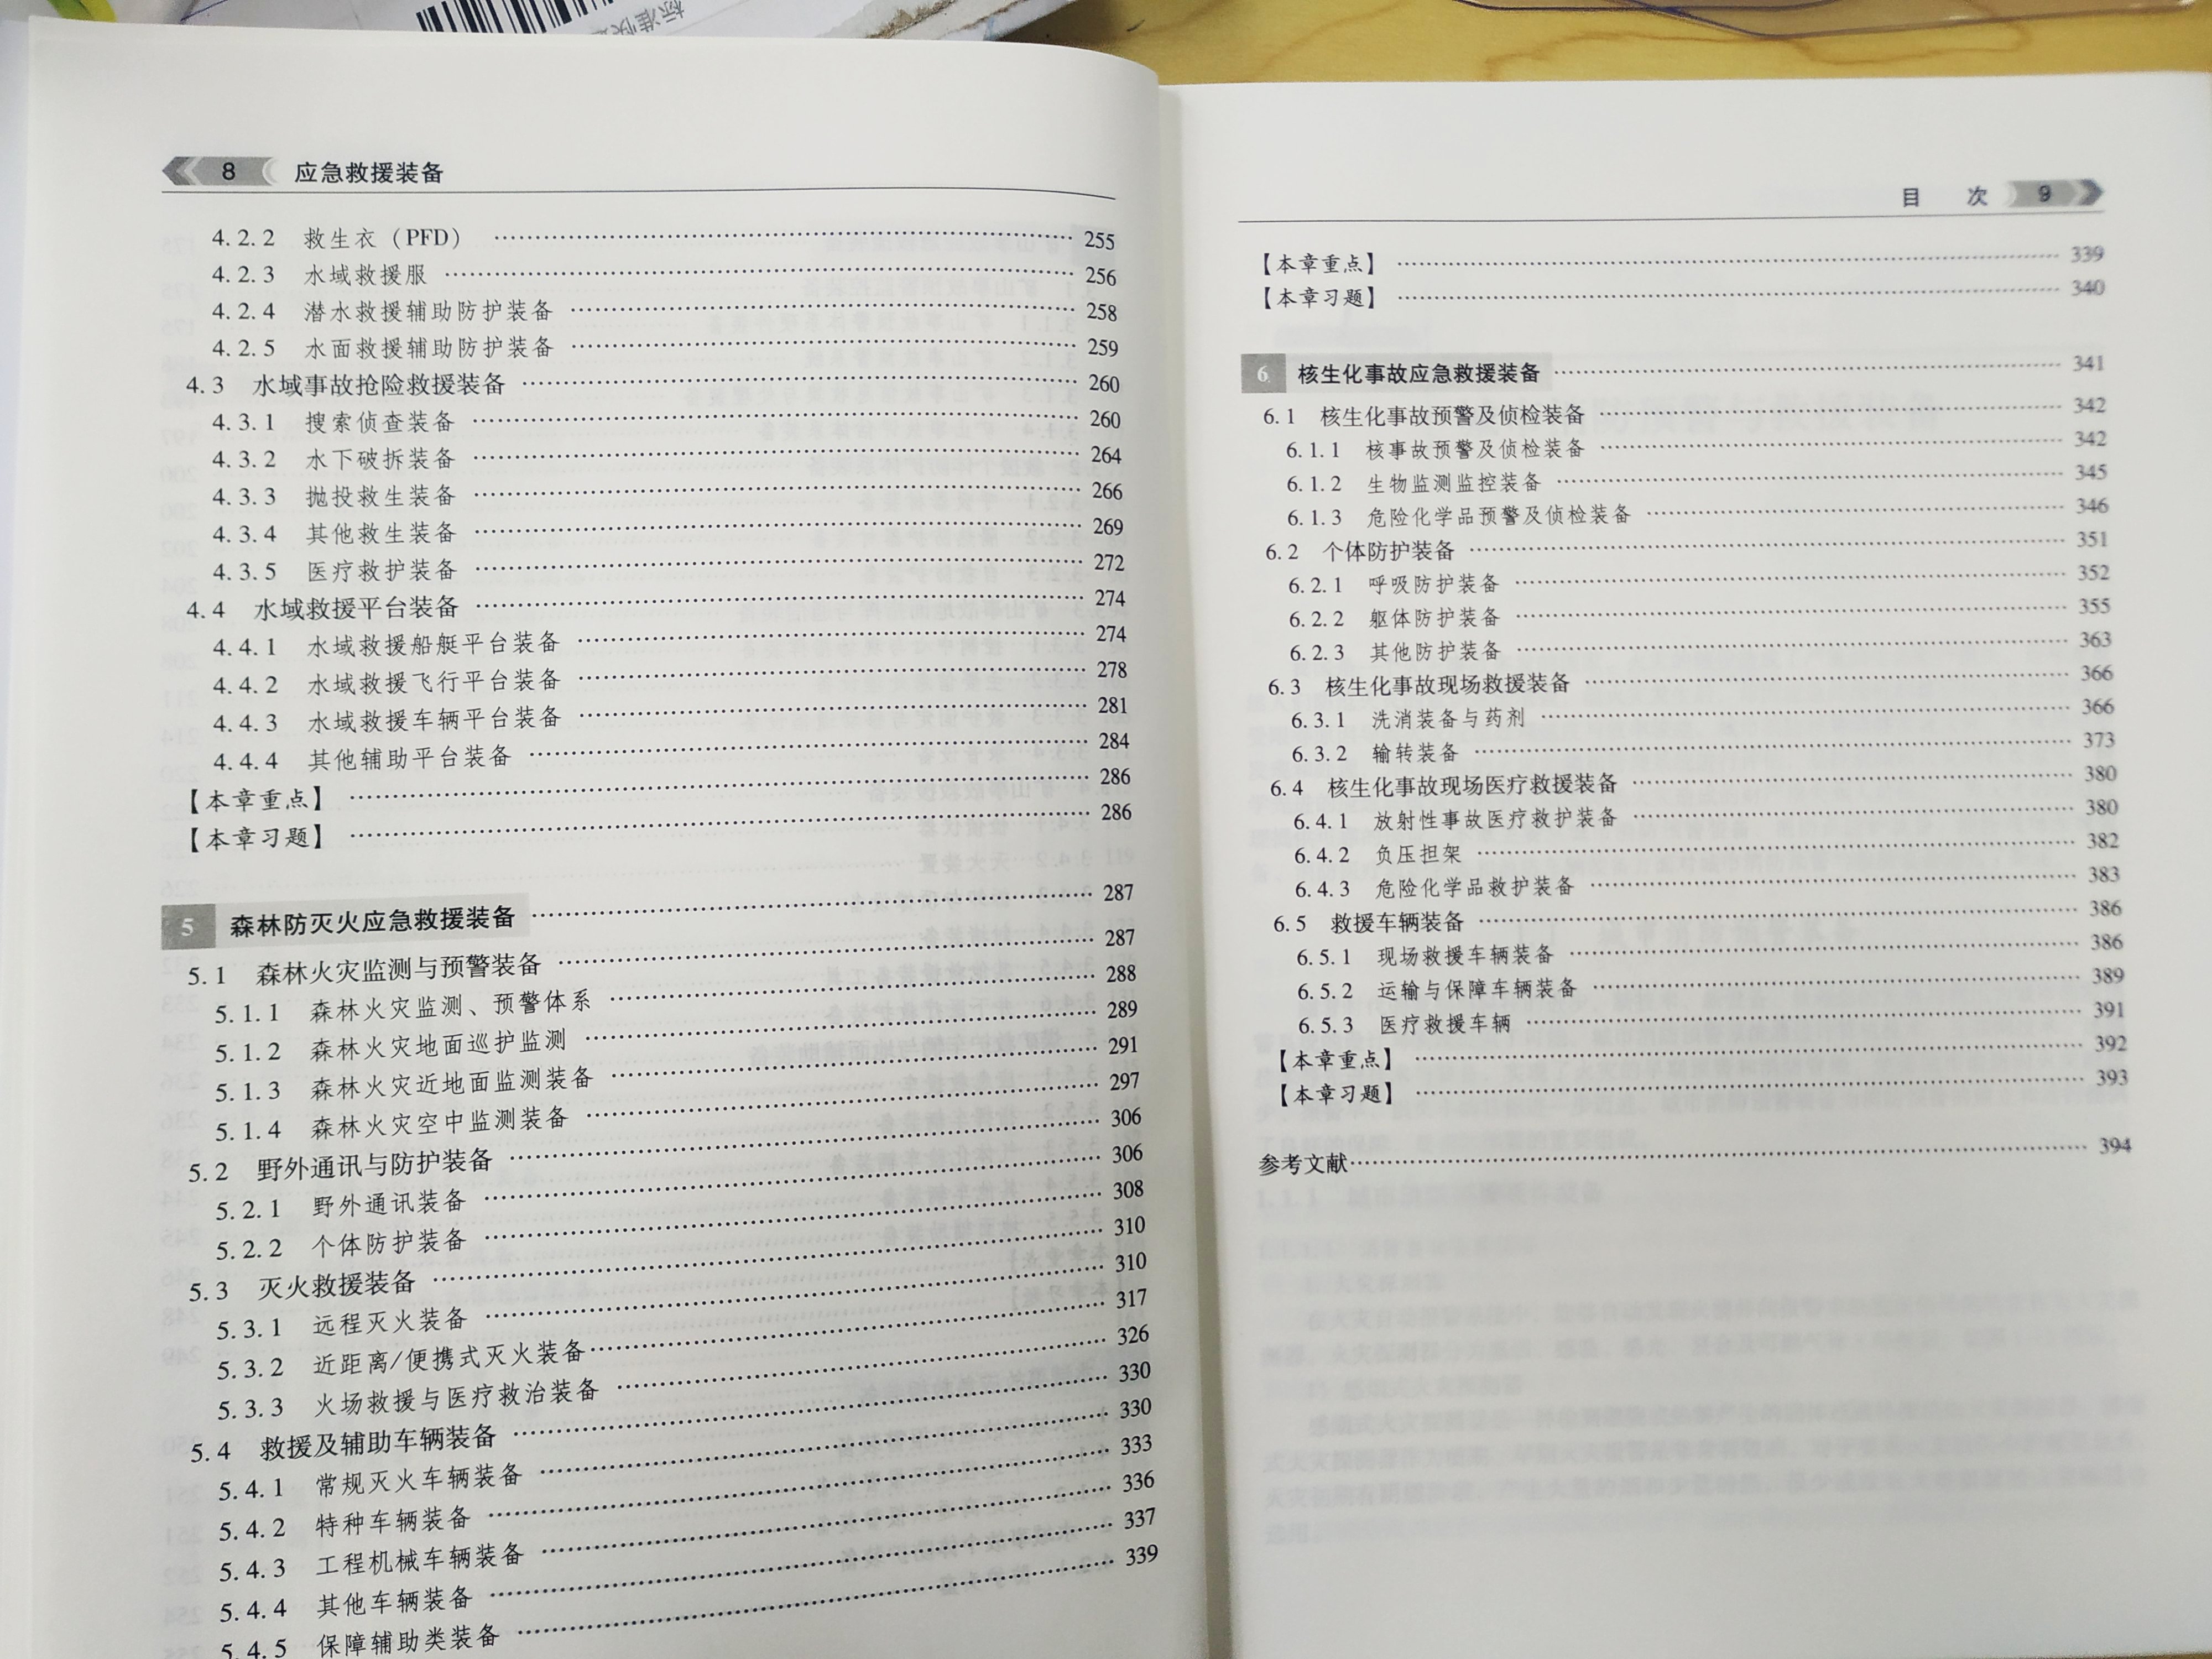 标准快
8 应急救援装备
4.2.2 救生衣（PFD） …… 255
4.2.3 水域救援服 …… 256
4.2.4 潜水救援辅助防护装备 …… 258
4.2.5 水面救援辅助防护装备 …… 259
4.3 水域事故抢险救援装备 …… 260
4.3.1 搜索侦查装备 …… 260
4.3.2 水下破拆装备 …… 264
4.3.3 抛投救生装备 …… 266
4.3.4 其他救生装备 …… 269
4.3.5 医疗救护装备 …… 272
4.4 水域救援平台装备 …… 274
4.4.1 水域救援船艇平台装备 …… 274
4.4.2 水域救援飞行平台装备 …… 278
4.4.3 水域救援车辆平台装备 …… 281
4.4.4 其他辅助平台装备 …… 284
【本章重点】 …… 286
【本章习题】 …… 286
5 森林防灭火应急救援装备 …… 287
5.1 森林火灾监测与预警装备 …… 287
5.1.1 森林火灾监测、预警体系 …… 288
5.1.2 森林火灾地面巡护监测 …… 289
5.1.3 森林火灾近地面监测装备 …… 291
5.1.4 森林火灾空中监测装备 …… 297
5.2 野外通讯与防护装备 …… 306
5.2.1 野外通讯装备 …… 306
5.2.2 个体防护装备 …… 308
5.3 灭火救援装备 …… 310
5.3.1 远程灭火装备 …… 310
5.3.2 近距离/便携式灭火装备 …… 317
5.3.3 火场救援与医疗救治装备 …… 326
5.4 救援及辅助车辆装备 …… 330
5.4.1 常规灭火车辆装备 …… 330
5.4.2 特种车辆装备 …… 333
5.4.3 工程机械车辆装备 …… 336
5.4.4 其他车辆装备 …… 337
5.4.5 保障辅助类装备 …… 339
目 次 9
【本章重点】 …… 339
【本章习题】 …… 340
6 核生化事故应急救援装备 …… 341
6.1 核生化事故预警及侦检装备 …… 342
6.1.1 核事故预警及侦检装备 …… 342
6.1.2 生物监测监控装备 …… 345
6.1.3 危险化学品预警及侦检装备 …… 346
6.2 个体防护装备 …… 351
6.2.1 呼吸防护装备 …… 352
6.2.2 躯体防护装备 …… 355
6.2.3 其他防护装备 …… 363
6.3 核生化事故现场救援装备 …… 366
6.3.1 洗消装备与药剂 …… 366
6.3.2 输转装备 …… 373
6.4 核生化事故现场医疗救援装备 …… 380
6.4.1 放射性事故医疗救护装备 …… 380
6.4.2 负压担架 …… 382
6.4.3 危险化学品救护装备 …… 383
6.5 救援车辆装备 …… 386
6.5.1 现场救援车辆装备 …… 386
6.5.2 运输与保障车辆装备 …… 389
6.5.3 医疗救援车辆 …… 391
【本章重点】 …… 392
【本章习题】 …… 393
参考文献 …… 394